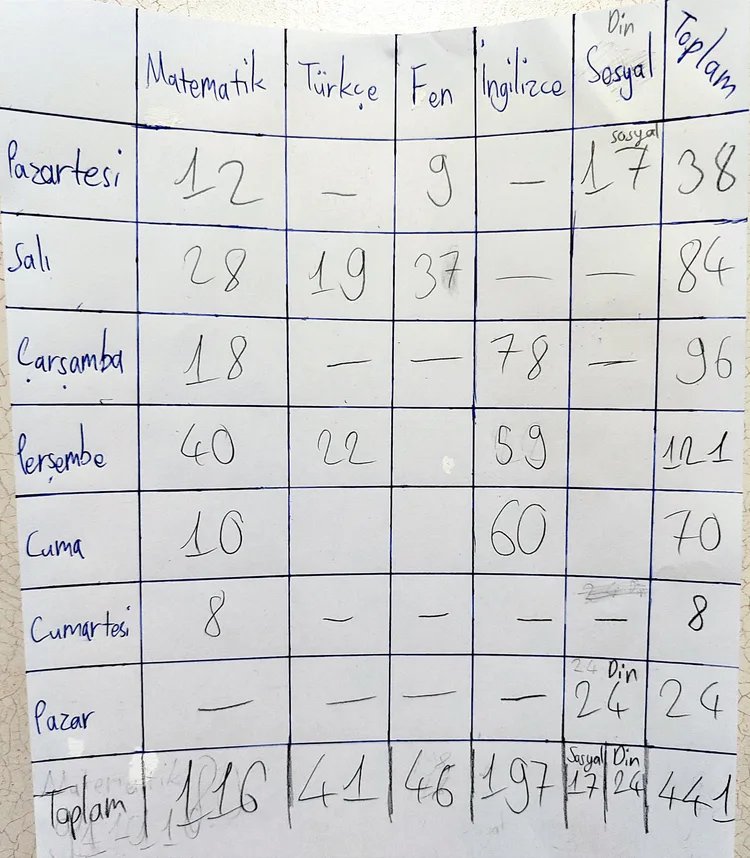 Din
Matematik Türkçe Fen İngilizce Sosyal Toplam
sosyal
Pazartesi 12 — 9 — 17 38
Salı 28 19 37 — — 84
Çarşamba 18 — — 78 — 96
Perşembe 40 22 59 121
Cuma 10 60 70
24 Din
Cumartesi 8 — — — — 8
24 Din
Pazar — — — — 24 24
Sosyal Din
Toplam 116 41 46 197 17 24 441